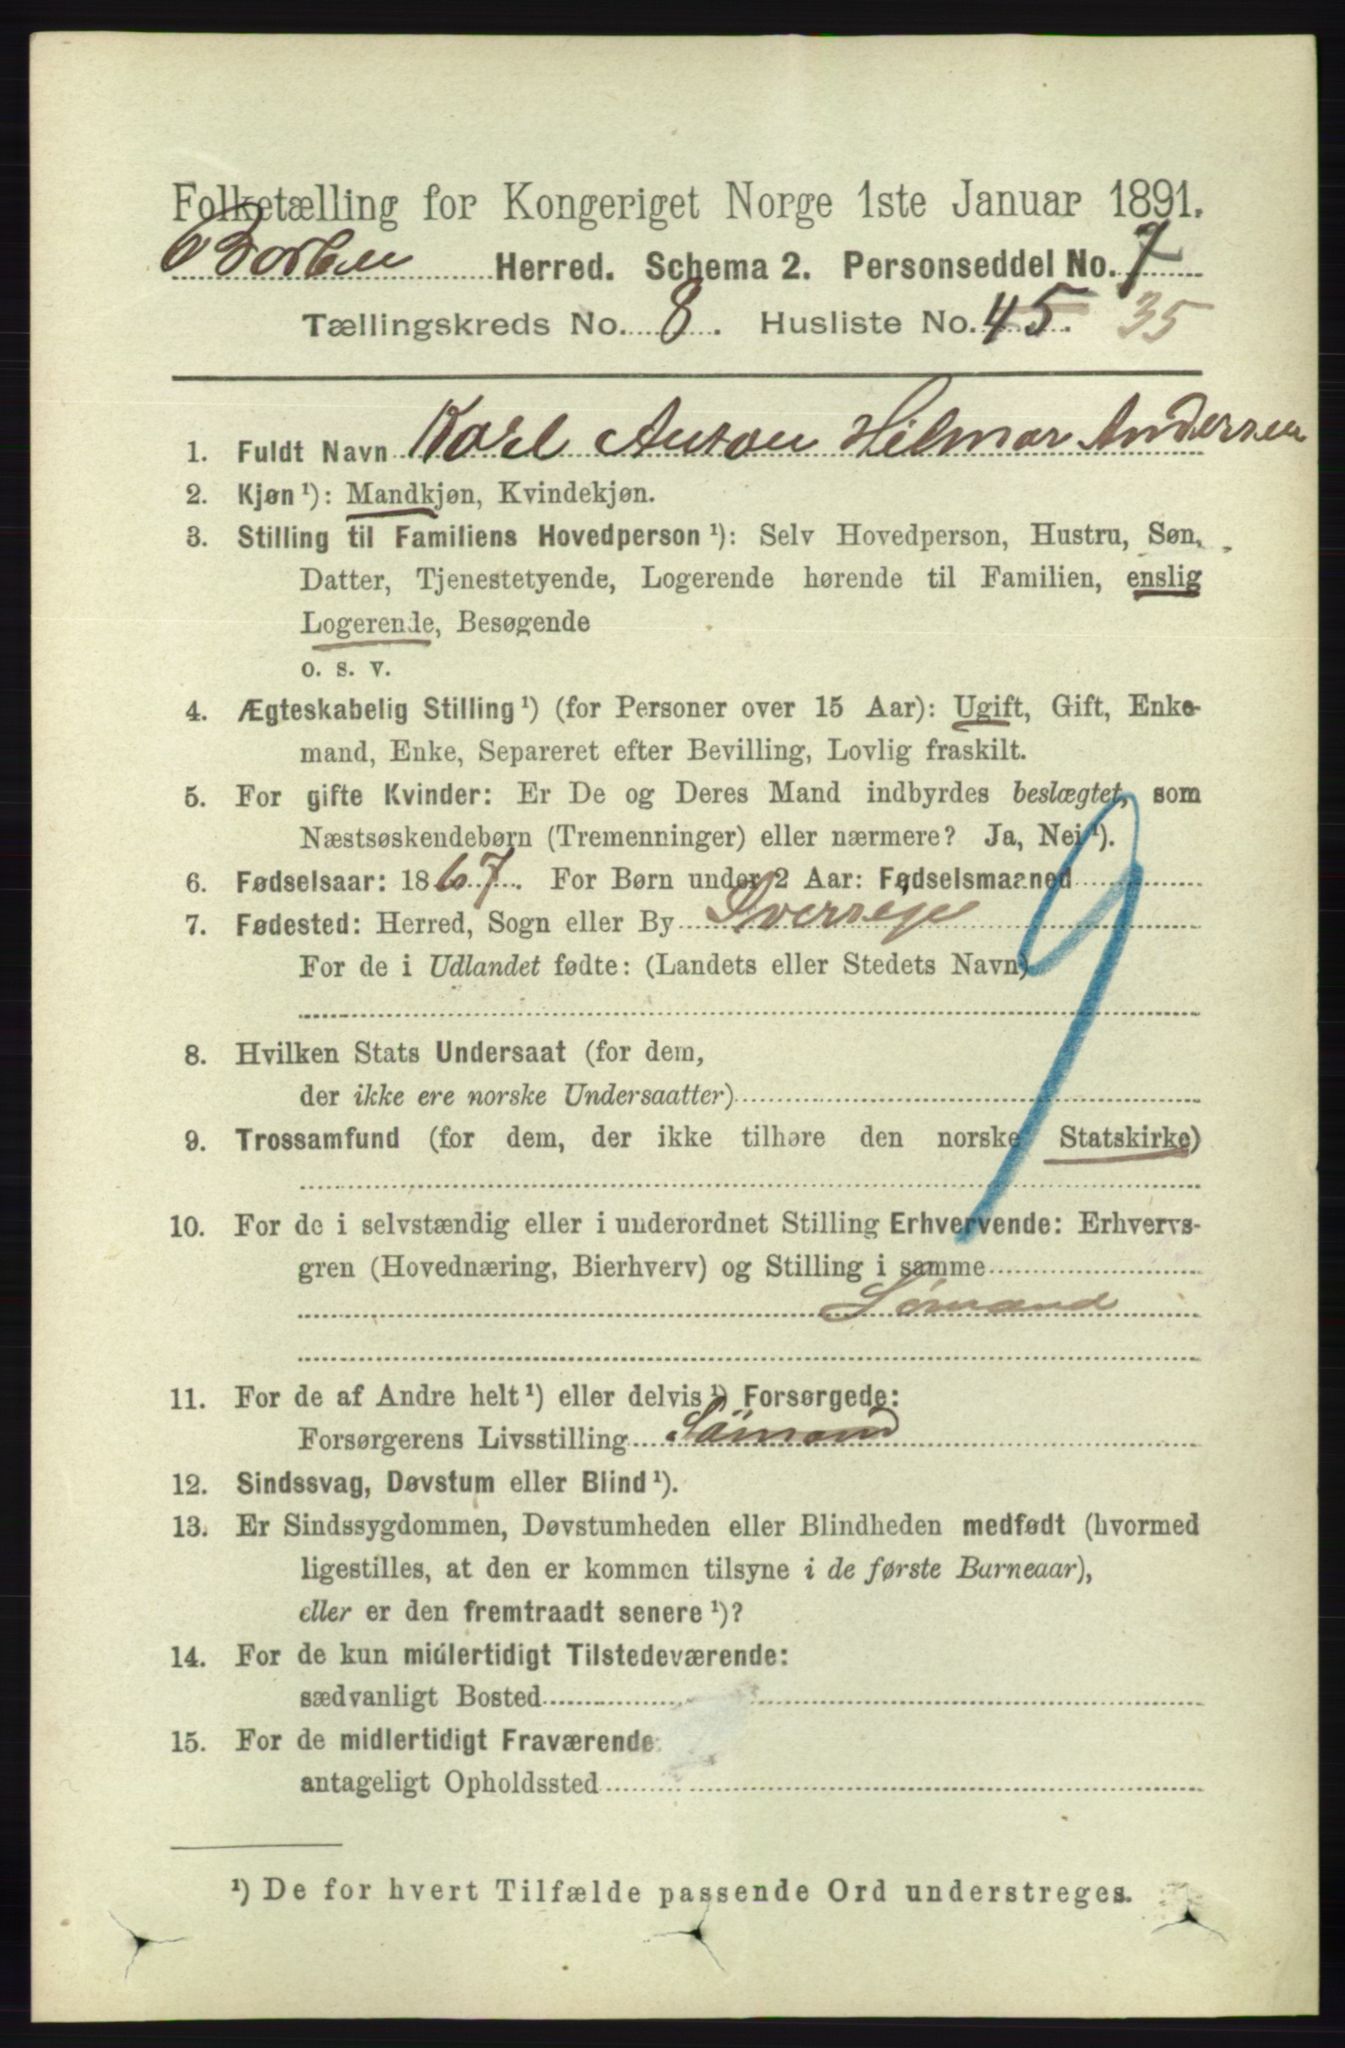 Folketælling for Kongeriget Norge 1ste Januar 1891.
Herred. Schema 2. Personseddel No. 7
Tællingskreds No. 8. Husliste No. 45. 35
1. Fuldt Navn Karl Anton Hilmar Andersen
2. Kjøn ¹): Mandkjøn, Kvindekjøn.
3. Stilling til Familiens Hovedperson ¹): Selv Hovedperson, Hustru, Søn,
Datter, Tjenestetyende, Logerende hørende til Familien, enslig
Logerende, Besøgende
o. s. v.
4. Ægteskabelig Stilling ¹) (for Personer over 15 Aar): Ugift, Gift, Enke-
mand, Enke, Separeret efter Bevilling, Lovlig fraskilt.
5. For gifte Kvinder: Er De og Deres Mand indbyrdes beslægtet, som
Næstsøskendebørn (Tremenninger) eller nærmere? Ja, Nei ¹).
6. Fødselsaar: 1867. For Børn under 2 Aar: Fødselsmaaned
7. Fødested: Herred, Sogn eller By Sverrige
For de i Udlandet fødte: (Landets eller Stedets Navn)
8. Hvilken Stats Undersaat (for dem,
der ikke ere norske Undersaatter)
9. Trossamfund (for dem, der ikke tilhøre den norske Statskirke)
10. For de i selvstændig eller i underordnet Stilling Erhvervende: Erhvervs-
gren (Hovednæring, Bierhverv) og Stilling i samme
Sømand
11. For de af Andre helt ¹) eller delvis ¹) Forsørgede:
Forsørgerens Livsstilling Sömand
12. Sindssvag, Døvstum eller Blind ¹).
13. Er Sindssygdommen, Døvstumheden eller Blindheden medfødt (hvormed
ligestilles, at den er kommen tilsyne i de første Barneaar),
eller er den fremtraadt senere ¹)?
14. For de kun midlertidigt Tilstedeværende:
sædvanligt Bosted
15. For de midlertidigt Fraværende
antageligt Opholdssted
9
¹) De for hvert Tilfælde passende Ord understreges.